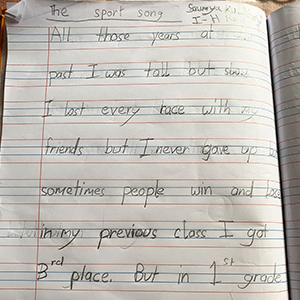 The sport song
I-H
All those years at
past I was tall but slow
I lost every race with my
friends but I never gave up
sometimes people win and lose
in my previous class I got
3rd place. But in 1st grade